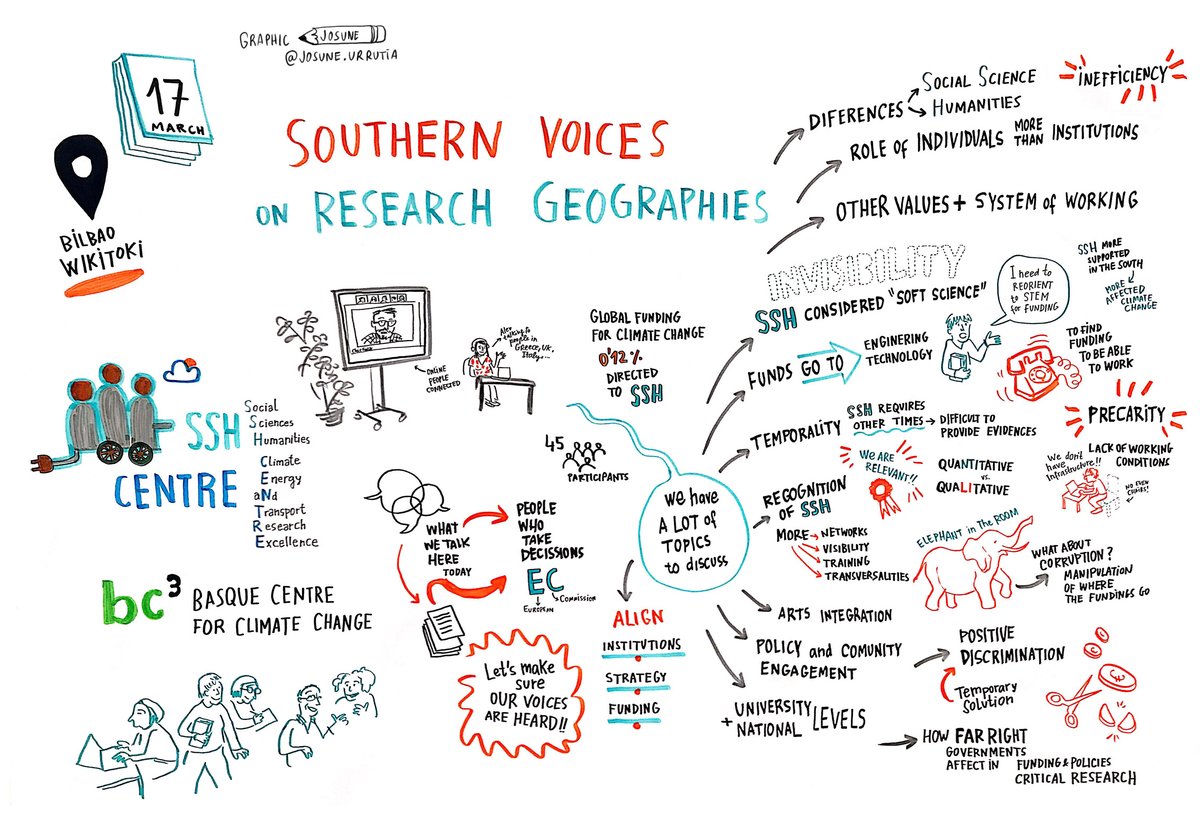 GRAPHIC JOSUNE
@JOSUNE.URRUTIA
17
MARCH
BILBAO
WIKITOKI
SOUTHERN VOICES
ON RESEARCH GEOGRAPHIES
SSH
CENTRE
Social
Sciences
Humanities
Climate
Energy
aNd
Transport
Research
Excellence
bc³ BASQUE CENTRE
FOR CLIMATE CHANGE
ONLINE
PEOPLE
CONNECTED
talking to
people in
Greece, UK,
Italy...
GLOBAL FUNDING
FOR CLIMATE CHANGE
0'12%
DIRECTED
TO SSH
45
PARTICIPANTS
WHAT
WE TALK
HERE
TODAY
PEOPLE
WHO
TAKE
DECISSIONS
EC
Commission
EUROPEAN
Let's make
sure
OUR VOICES
ARE HEARD!!
We have
A LOT of
TOPICS
to discuss
ALIGN
INSTITUTIONS
STRATEGY
FUNDING
DIFERENCES
SOCIAL SCIENCE
HUMANITIES
INEFFICIENCY
ROLE of INDIVIDUALS MORE THAN INSTITUTIONS
OTHER VALUES + SYSTEM of WORKING
INVISIBILITY
SSH CONSIDERED "SOFT SCIENCE"
I need to
REORIENT
to STEM
for FUNDING
SSH MORE
SUPPORTED
IN THE SOUTH
MORE
AFFECTED
CLIMATE
CHANGE
FUNDS GO TO
ENGINERING
TECHNOLOGY
TO FIND
FUNDING
TO BE ABLE
TO WORK
PRECARITY
LACK OF WORKING
CONDITIONS
We don't
have
Infrastructure!!
NO EVEN
CHAIRS!
TEMPORALITY
SSH REQUIRES
OTHER TIMES
DIFFICULT TO
PROVIDE EVIDENCES
WE ARE
RELEVANT!!
QUANTITATIVE
vs.
QUALITATIVE
RECOGNITION
OF SSH
MORE
NETWORKS
VISIBILITY
TRAINING
TRANSVERSALITIES
ELEPHANT in the ROOM
WHAT ABOUT
CORRUPTION?
MANIPULATION
OF WHERE
THE FUNDINGS GO
ARTS INTEGRATION
POLICY and COMUNITY
ENGAGEMENT
POSITIVE
DISCRIMINATION
Temporary
Solution
UNIVERSITY
+ NATIONAL LEVELS
HOW FAR RIGHT
GOVERNMENTS
AFFECT IN FUNDING & POLICIES
CRITICAL RESEARCH